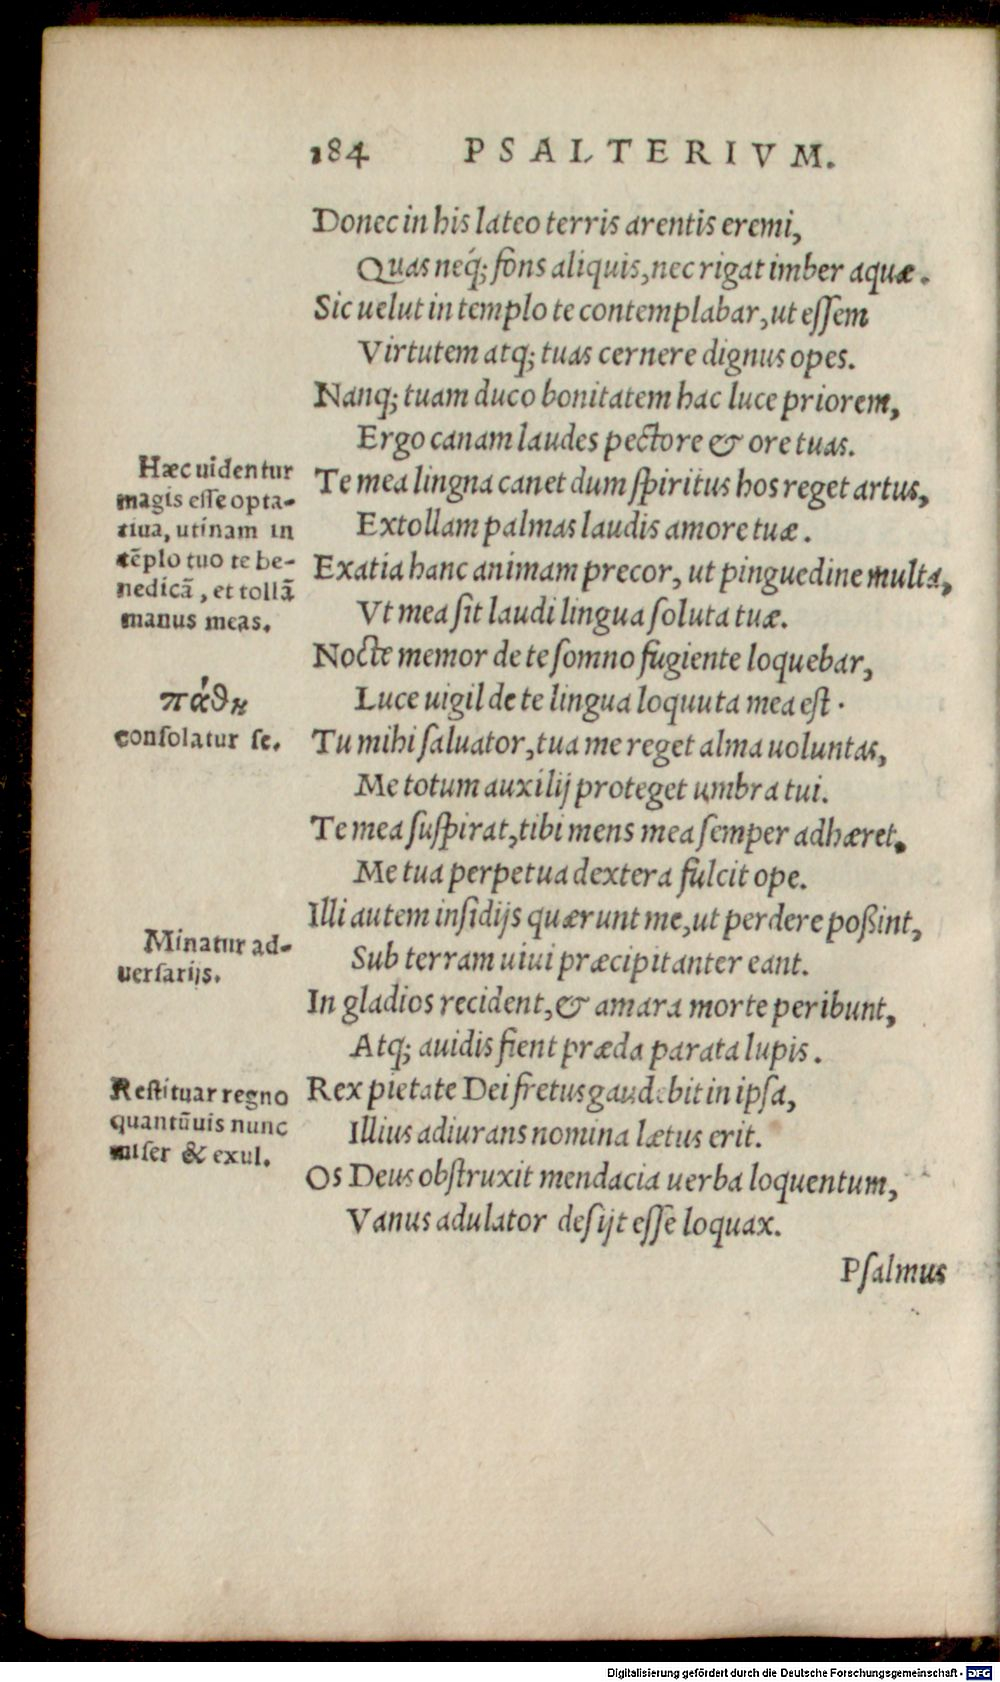 184 PSALTERIVM.
Donec in his lateo terris arentis eremi,
Quas neq́; fons aliquis, nec rigat imber aquæ.
Sic uelut in templo te contemplabar, ut eſſem
Virtutem atq; tuas cernere dignus opes.
Nanq; tuam duco bonitatem hac luce priorem,
Ergo canam laudes pectore & ore tuas.
Hæc uidentur
magis eſſe opta-
tiua, utinam in
tẽplo tuo te be-
nedicã, et tollã
manus meas.
Te mea lingna canet dum ſpiritus hos reget artus,
Extollam palmas laudis amore tuæ.
Exatia hanc animam precor, ut pinguedine multa,
Vt mea ſit laudi lingua ſoluta tuæ.
Nocte memor de te ſomno fugiente loquebar,
Luce uigil de te lingua loquuta mea eſt.
πάθη
conſolatur ſe.
Tu mihi ſaluator, tua me reget alma uoluntas,
Me totum auxilij proteget umbra tui.
Te mea ſuſpirat, tibi mens mea ſemper adhæret.
Me tua perpetua dextera fulcit ope.
Illi autem inſidijs quærunt me, ut perdere poßint,
Sub terram uiui præcipitanter eant.
Minatur ad-
uerſarijs.
In gladios recident, & amara morte peribunt,
Atq; auidis fient præda parata lupis.
Reſtituar regno
quantũuis nunc
miſer & exul.
Rex pietate Dei fretus gaudebit in ipſa,
Illius adiurans nomina lætus erit.
Os Deus obſtruxit mendacia uerba loquentum,
Vanus adulator deſijt eſſe loquax.
Pſalmus
Digitalisierung gefördert durch die Deutsche Forschungsgemeinschaft - DFG